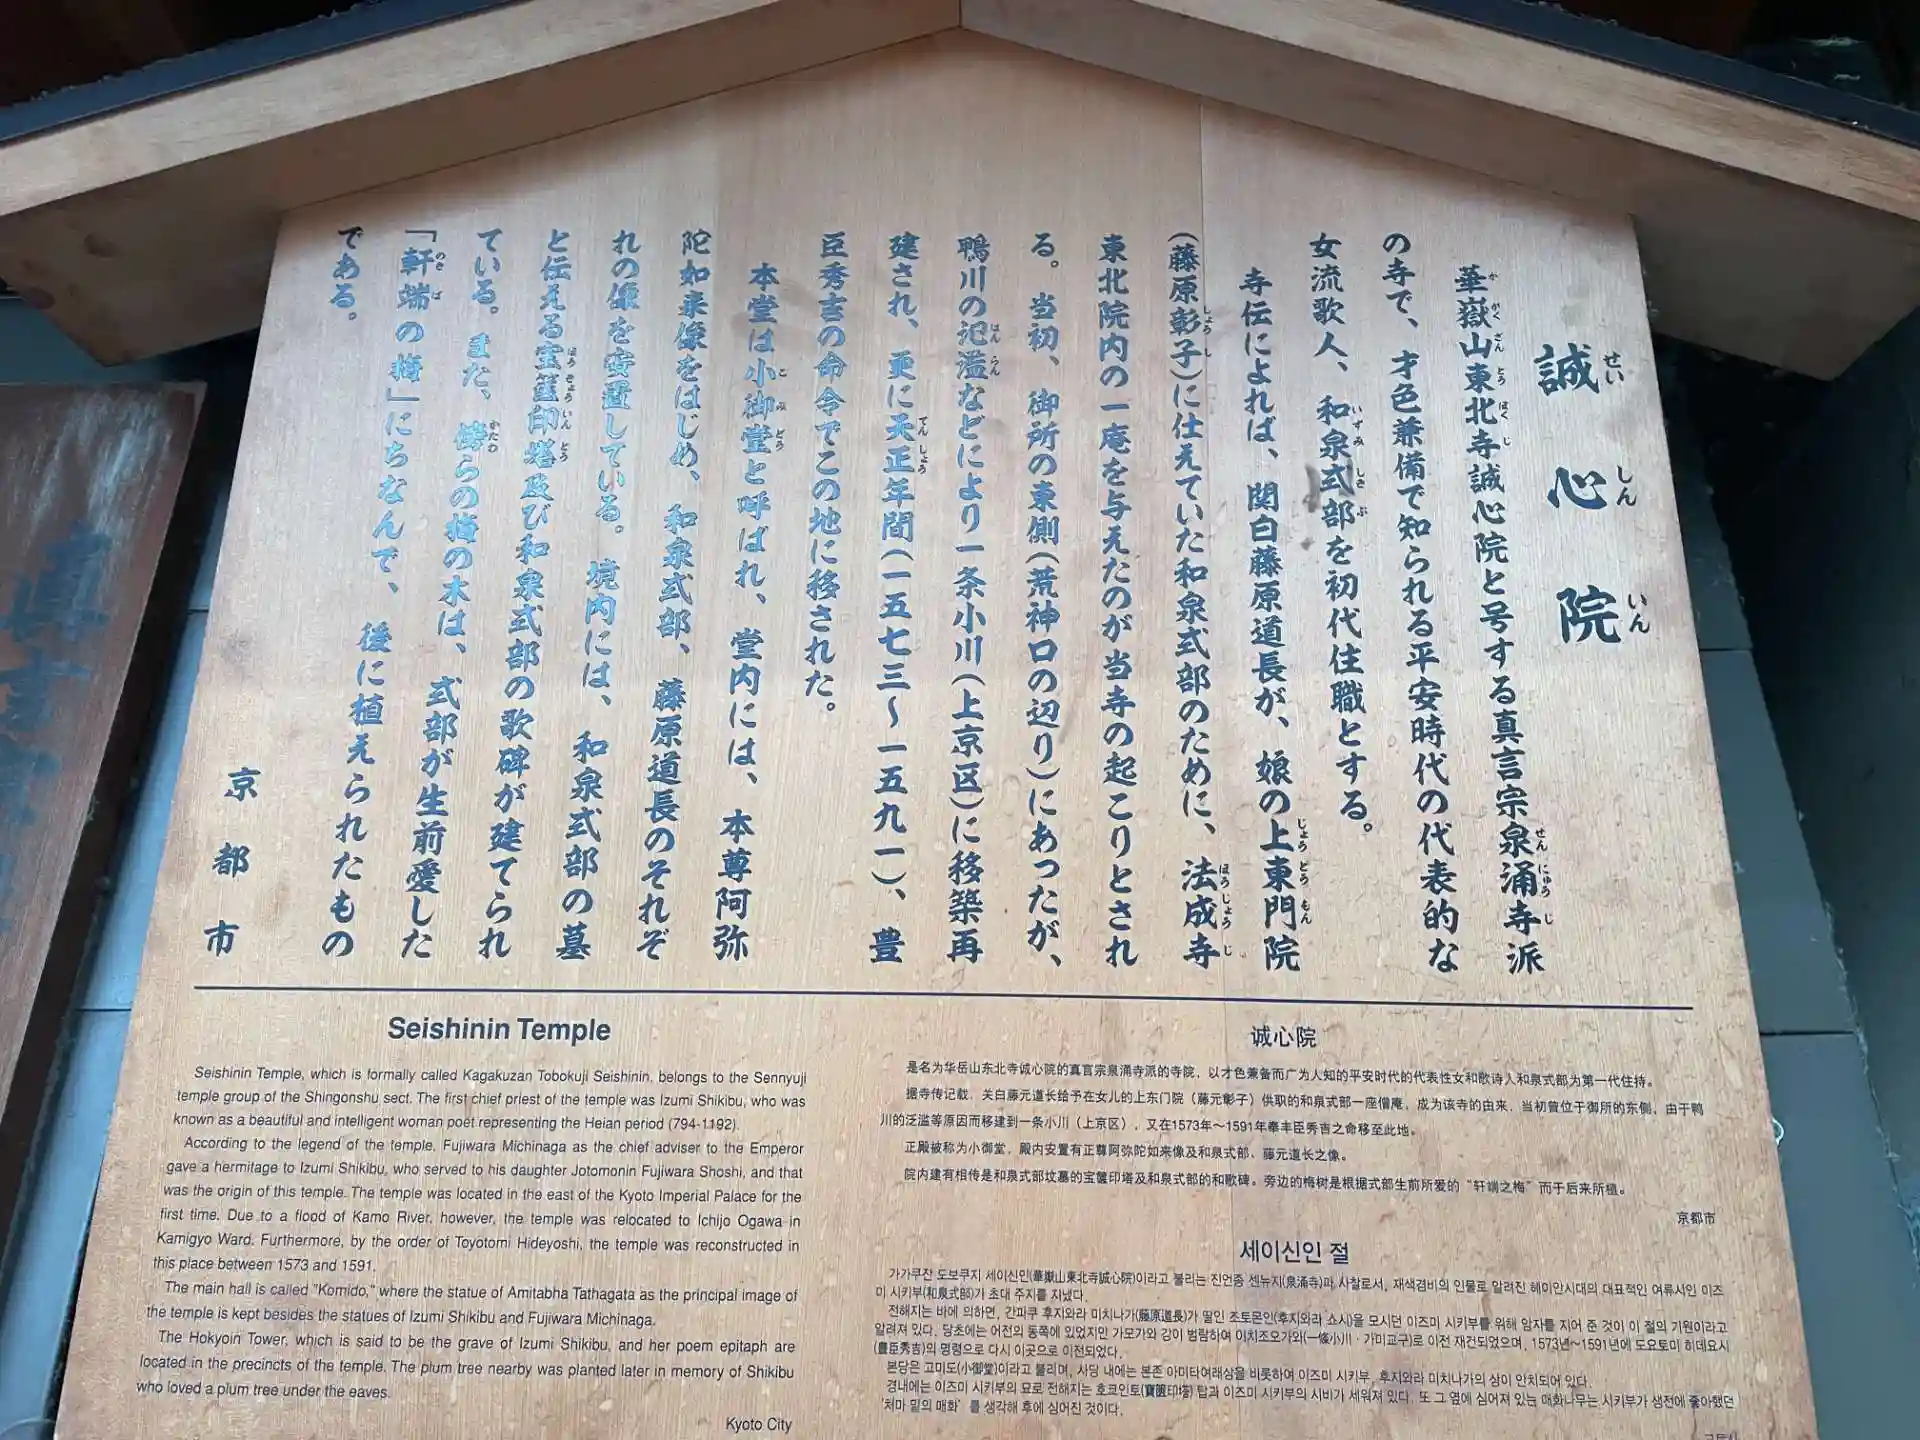 誠心院
華嶽山東北寺誠心院と号する真言宗泉涌寺派
の寺で、才色兼備で知られる平安時代の代表的な
女流歌人、和泉式部を初代住職とする。
寺伝によれば、関白藤原道長が、娘の上東門院
(藤原彰子)に仕えていた和泉式部のために、法成寺
東北院内の一庵を与えたのが当寺の起こりとされ
る。当初、御所の東側(荒神口の辺り)にあったが、
鴨川の氾濫などにより一条小川(上京区)に移築再
建され、更に天正年間(一五七三〜一五九一)、豊
臣秀吉の命令でこの地に移された。
本堂は小御堂と呼ばれ、堂内には、本尊阿弥
陀如来像をはじめ、和泉式部、藤原道長のそれぞ
れの像を安置している。境内には、和泉式部の墓
と伝える宝篋印塔及び和泉式部の歌碑が建てられ
ている。また、傍らの梅の木は、式部が生前愛した
「軒端の梅」にちなんで、後に植えられたもの
である。
京都市
Seishinin Temple
Seishinin Temple, which is formally called Kagakuzan Tobokuji Seishinin, belongs to the Sennyuji
temple group of the Shingonshu sect. The first chief priest of the temple was Izumi Shikibu, who was
known as a beautiful and intelligent woman poet representing the Heian period (794-1192).
According to the legend of the temple, Fujiwara Michinaga as the chief adviser to the Emperor
gave a hermitage to Izumi Shikibu, who served to his daughter Jotomonin Fujiwara Shoshi, and that
was the origin of this temple. The temple was located in the east of the Kyoto Imperial Palace for the
first time. Due to a flood of Kamo River, however, the temple was relocated to Ichijo Ogawa in
Kamigyo Ward. Furthermore, by the order of Toyotomi Hideyoshi, the temple was reconstructed in
this place between 1573 and 1591.
The main hall is called "Komido," where the statue of Amitabha Tathagata as the principal image of
the temple is kept besides the statues of Izumi Shikibu and Fujiwara Michinaga.
The Hokyoin Tower, which is said to be the grave of Izumi Shikibu, and her poem epitaph are
located in the precincts of the temple. The plum tree nearby was planted later in memory of Shikibu
who loved a plum tree under the eaves.
Kyoto City
诚心院
是名为华岳山东北寺诚心院的真言宗泉涌寺派的寺院，以才色兼备而广为人知的平安时代的代表性女和歌诗人和泉式部为第一代住持。
据寺传记载，关白藤元道长给予在女儿的上东门院（藤元彰子）供职的和泉式部一座僧庵，成为该寺的由来，当初曾位于御所的东侧，由于鸭
川的泛滥等原因而移建到一条小川（上京区），又在1573年～1591年奉丰臣秀吉之命移至此地。
正殿被称为小御堂，殿内安置有正尊阿弥陀如来像及和泉式部、藤元道长之像。
院内建有相传是和泉式部坟墓的宝箧印塔及和泉式部的和歌碑。旁边的梅树是根据式部生前所爱的“轩端之梅”而于后来所植。
京都市
세이신인 절
가가쿠잔 도보쿠지 세이신인(華嶽山東北寺誠心院)이라고 불리는 진언종 센뉴지(泉涌寺)파 사찰로서, 재색겸비의 인물로 알려진 헤이안시대의 대표적인 여류시인 이즈
미 시키부(和泉式部)가 초대 주지를 지냈다.
전해지는 바에 의하면, 간파쿠 후지와라 미치나가(藤原道長)가 딸인 조토몬인(후지와라 쇼시)을 모시던 이즈미 시키부를 위해 암자를 지어 준 것이 이 절의 기원이라고
알려져 있다. 당초에는 어전의 동쪽에 있었지만 가모가와 강이 범람하여 이치조오가와(一條小川・가미교구)로 이전 재건되었으며, 1573년~1591년에 도요토미 히데요시
(豊臣秀吉)의 명령으로 다시 이곳으로 이전되었다.
본당은 고미도(小御堂)이라고 불리며, 사당 내에는 본존 아미타여래상을 비롯하여 이즈미 시키부, 후지와라 미치나가의 상이 안치되어 있다.
경내에는 이즈미 시키부의 묘로 전해지는 호쿄인토(寶篋印塔) 탑과 이즈미 시키부의 시비가 세워져 있다. 또 그 옆에 심어져 있는 매화나무는 시키부가 생전에 좋아했던
'처마 밑의 매화'를 생각해 후에 심어진 것이다.